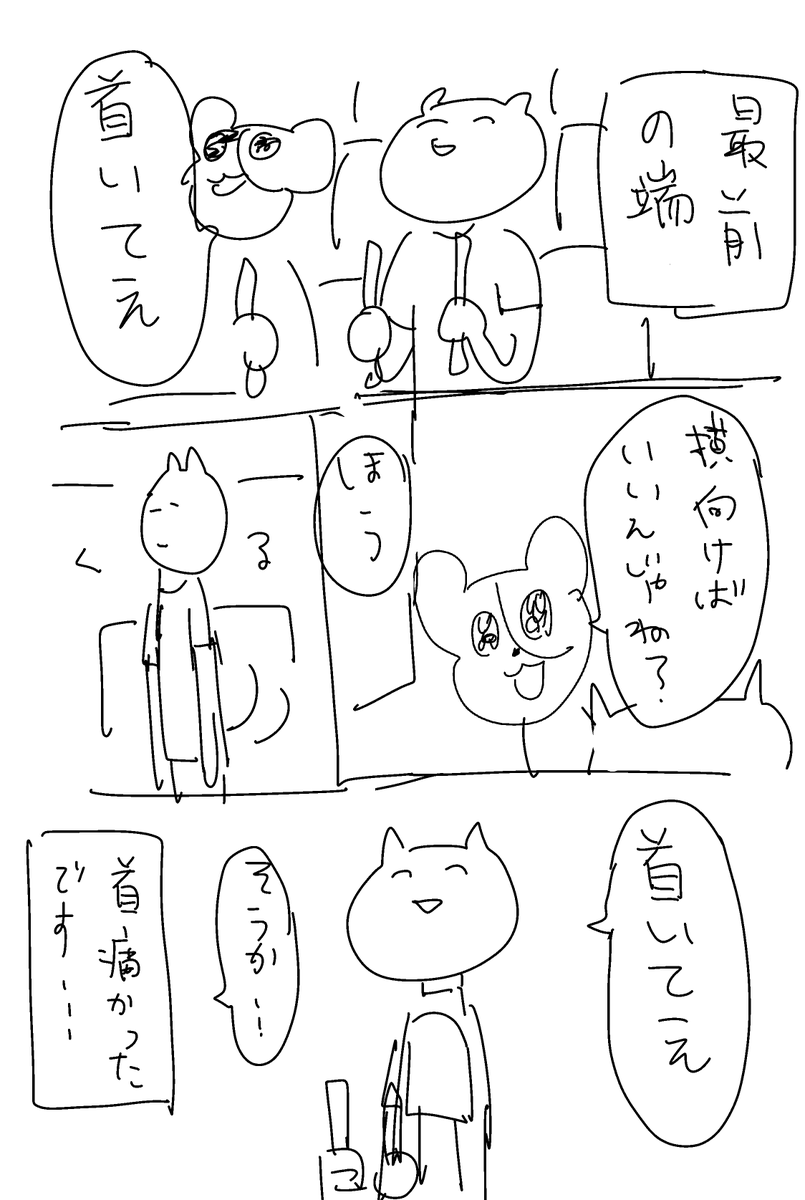 最前
の端
首いてえ
横向けば
いいんじゃね?
ほう
くる
首いてえ
そうか…
首、痛かった
です…